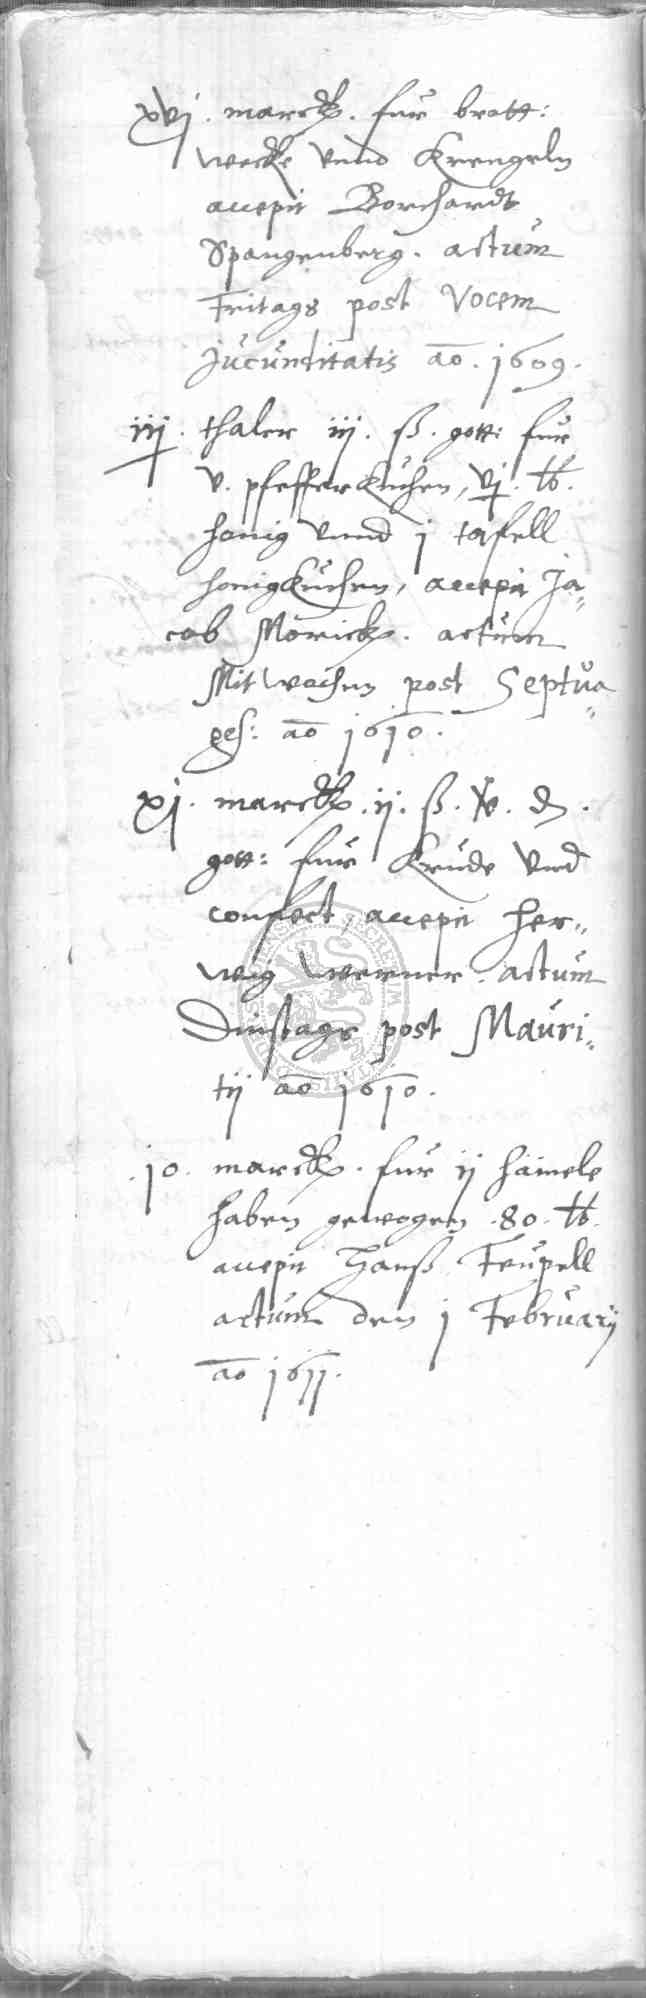 xvj. marck. fur brott:
wecke vnnd Krengeln
accepit Borchardt
Spangenberg. actum
Fritags post Vocem
Jucunditatis ao. 1609.
iij. thaler iij. ß. gott: fur
v. pfefferkuchen, vj. lb.
honig vnnd j tafell
honigkuchen, accepit Ja„
cob Mörick. actum
Mitwochen post Septua„
ges: ao 1610.
xj. marck. ij. ß. d.
gott: fur Krude vnd
confect, accepit Her„
wig Werner. actum
Dinstags post Mauri„
tij ao 1610.
.10. marck. fur ij hämele
haben gewogen .80. lb.
accepit Hanß Teupell
actum den j Februarij
ao 1611.